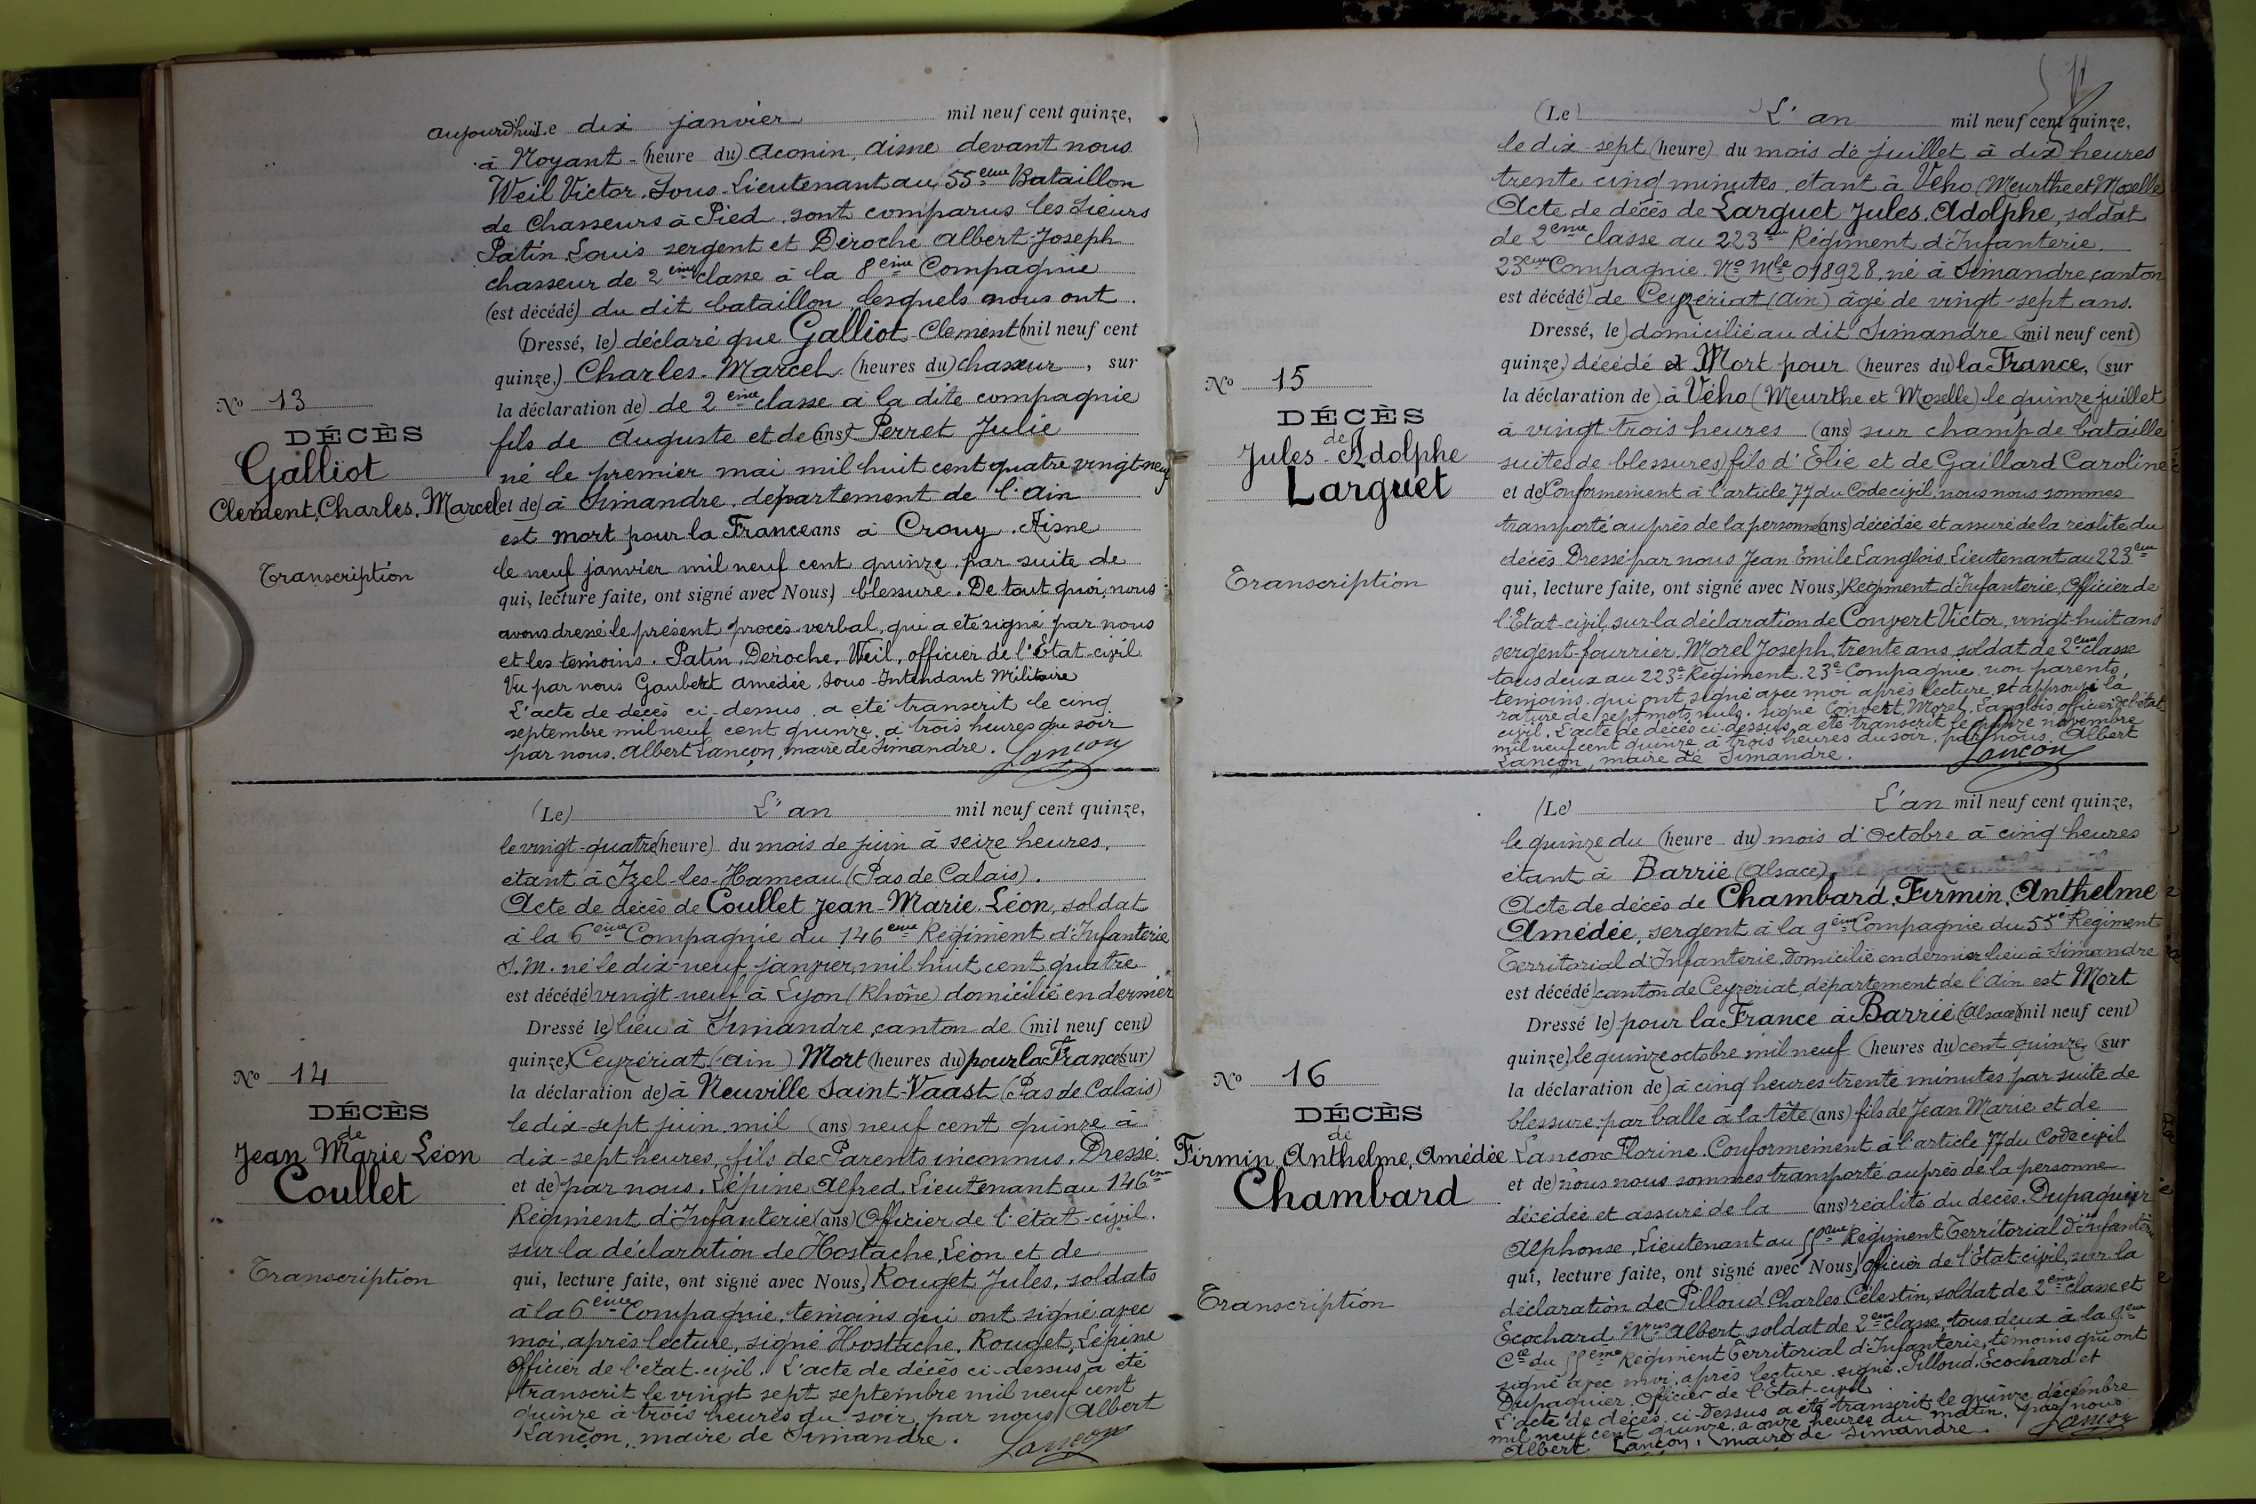 aujourd'hui Le dix janvier mil neuf cent quinze,
à Noyant (heure du) Aconin, Aisne devant nous
Weil Victor, Sous-Lieutenant au 55eme Bataillon
de Chasseurs à Pied, sont comparus les Sieurs
Patin Louis sergent et Déroche Albert-Joseph
chasseur de 2eme classe à la 8eme Compagnie
(est décédé) du dit bataillon, lesquels nous ont
(Dressé, le) déclaré que Galliot Clément (mil neuf cent
quinze,) Charles, Marcel (heures du) chasseur, sur
la déclaration de) de 2eme classe à la dite compagnie
fils de Auguste et de (ans) Perret Julie
né le premier mai mil huit cent quatre vingt neuf
et de) à Simandre, département de l'Ain
est mort pour la France ans à Crouy, Aisne
le neuf janvier mil neuf cent quinze, par suite de
qui, lecture faite, ont signé avec Nous) blessure. De tout quoi, nous
avons dressé le présent procès-verbal, qui a été signé par nous
et les témoins. Patin, Déroche, Weil, officier de l'Etat-civil
Vu par nous Gaubert Amédée, Sous-Intendant Militaire
L'acte de décès ci-dessus a été transcrit le cinq
septembre mil neuf cent quinze à trois heures du soir
par nous, Albert Lançon, maire de Simandre. Lançon
No 13
DÉCÈS
Galliot
Clément, Charles, Marcel
Transcription
(Le) L'an mil neuf cent quinze,
le vingt-quatre (heure) du mois de juin à seize heures,
étant à Izel-les-Hameau (Pas de Calais).
Acte de décès de Coullet Jean-Marie Léon, soldat
à la 6eme Compagnie du 146eme Régiment d'Infanterie
S.M. né le dix-neuf janvier mil huit cent quatre
est décédé) vingt-neuf à Lyon (Rhône) domicilié en dernier
Dressé le) lieu à Simandre, canton de (mil neuf cent)
quinze,) Ceyzériat (Ain) Mort (heures du) pour la France (sur)
la déclaration de) à Neuville Saint-Vaast (Pas de Calais)
le dix-sept juin mil (ans) neuf cent quinze à
dix-sept heures, fils de Parents inconnus. Dressé
et de) par nous, Lépine Alfred, Lieutenant au 146eme
Régiment d'Infanterie (ans) Officier de l'état-civil.
sur la déclaration de Hostache Léon et de
qui, lecture faite, ont signé avec Nous,) Rouget Jules, soldats
à la 6eme Compagnie, témoins qui ont signé avec
moi, après lecture, signé Hostache, Rouget, Lépine
Officier de l'état-civil. L'acte de décès ci-dessus a été
transcrit le vingt sept septembre mil neuf cent
quinze à trois heures du soir, par nous Albert
Lançon, maire de Simandre. Lançon
No 14
DÉCÈS
de
Jean Marie Léon
Coullet
Transcription
(Le) L'an mil neuf cent quinze,
le dix-sept (heure) du mois de juillet à dix heures
trente cinq minutes, étant à Vého (Meurthe et Moselle)
Acte de décès de Larguet Jules, Adolphe, soldat
de 2eme classe au 223eme Régiment d'Infanterie.
23eme Compagnie No Mle 018928, né à Simandre, canton
est décédé) de Ceyzériat (Ain) âgé de vingt-sept ans.
Dressé, le) domicilié au dit Simandre (mil neuf cent)
quinze,) décédé et Mort pour (heures du) la France, (sur
la déclaration de) à Vého (Meurthe et Moselle) le quinze juillet
à vingt trois heures (ans) sur champ de bataille
suites de blessures) fils d'Elie et de Gaillard Caroline
et de) Conformément à l'article 77 du Code civil, nous nous sommes
transporté auprès de la personne (ans) décédée et assuré de la réalité du
décès Dressé par nous Jean Emile Langlois Lieutenant au 223eme
qui, lecture faite, ont signé avec Nous,) Régiment d'Infanterie, Officier de
l'Etat-civil, sur la déclaration de Convert Victor, vingt-huit ans
sergent-fourrier, Morel Joseph, trente ans, soldat de 2eme classe
tous deux au 223e Régiment, 23e Compagnie, non parents,
témoins qui ont signé avec moi après lecture, et approuvé la
rature de sept mots nuls. signé Convert, Morel, Langlois, officier de l'état
civil. L'acte de décès ci-dessus a été transcrit le quinze novembre
mil neuf cent quinze à trois heures du soir, par nous, Albert
Lançon, maire de Simandre. Lançon
No 15
DÉCÈS
de
Jules Adolphe
Larguet
Transcription
(Le) L'an mil neuf cent quinze,
le quinze du (heure du) mois d'Octobre à cinq heures
étant à Barrié (Alsace)
Acte de décès de Chambard, Firmin, Anthelme
Amédée, sergent à la 9eme Compagnie du 55e Régiment
Territorial d'Infanterie. Domicilié en dernier lieu à Simandre
est décédé) canton de Ceyzériat, département de l'Ain est Mort
Dressé le) pour la France à Barrié (Alsace) mil neuf cent)
quinze,) le quinze octobre mil neuf (heures du) cent quinze, (sur
la déclaration de) à cinq heures trente minutes par suite de
blessure par balle à la tête (ans) fils de Jean Marie et de
Lançon Florine. Conformément à l'article 77 du Code civil
et de) nous nous sommes transporté auprès de la personne
décédée et assuré de la (ans) réalité du décès. Dupaquier
Alphonse, Lieutenant au 55eme Régiment Territorial d'Infanterie
qui, lecture faite, ont signé avec Nous,) Officier de l'Etat-civil, sur la
déclaration de Pilloud Charles Célestin, soldat de 2eme classe et
Ecochard Mius Albert soldat de 2eme classe, tous deux à la 9eme
Cie du 55eme Régiment Territorial d'Infanterie, témoins qui ont
signé avec moi, après lecture. signé. Pilloud, Ecochard et
Dupaquier, Officier de l'Etat-civil.
L'acte de décès, ci-dessus a été transcrit le quinze décembre
mil neuf cent quinze, à onze heures du matin, par nous
Albert Lançon, maire de Simandre. Lançon
No 16
DÉCÈS
de
Firmin, Anthelme, Amédée
Chambard
Transcription